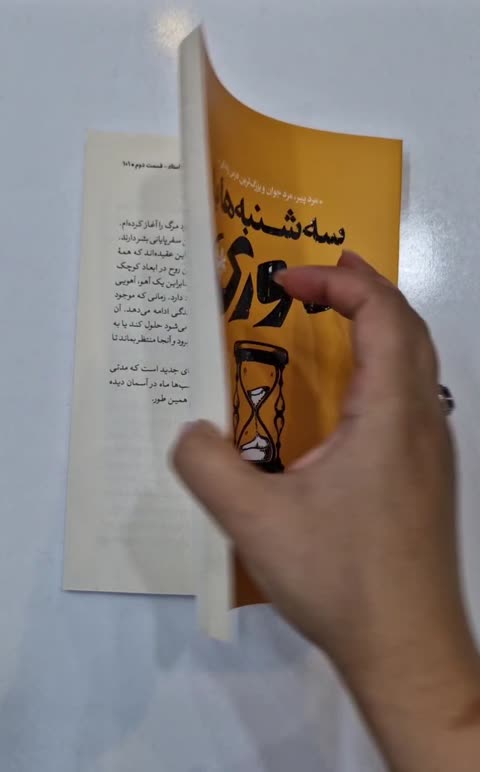 «مرد پیر، مرد جوان و بزرگ‌ترین درس زندگی»
سه‌شنبه‌ها با
موری
استاد - قسمت دوم ● ۱۰۱
مرگ را آغاز کرده‌ام.
سفر پایانی بشر دارند.
این عقیده‌اند که همهٔ
روح در ابعاد کوچک
بنابراین یک آهو، آهویی
دارد. زمانی که موجود
زندگی ادامه می‌دهد. آن
می‌شود حلول کند یا به
برود و آنجا منتظر بماند تا
جدید است که مدتی
شب‌ها ماه در آسمان دیده
همین طور.